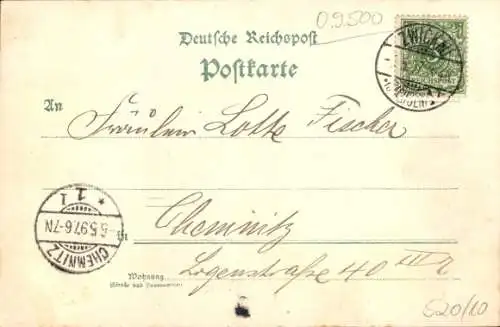 0.9500
Deutsche Reichspost
Postkarte
ZWICKAU
An
Fräulein Lotte Fischer
* 1 I
6.5.97.6-7N
CHEMNITZ
in
Chemnitz
Logenstraße 40 III r
Wohnung
(Straße und Hausnummer)
S20/10